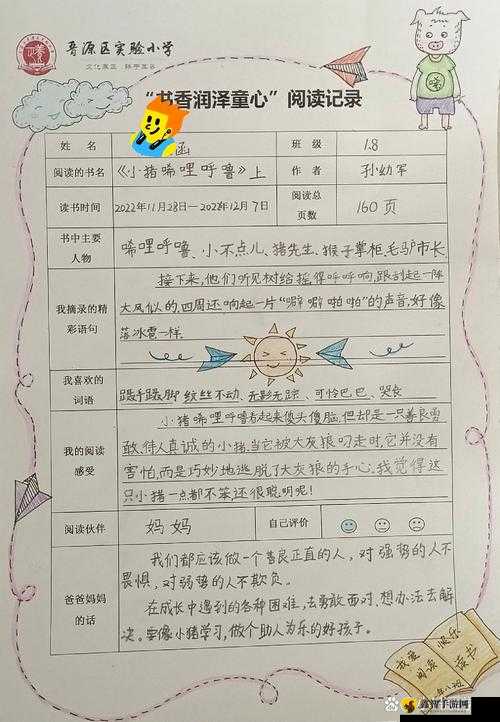 晋源区实验小学
"书香润泽童心"阅读记录
姓 名 涵 班 级 1.8
阅读的书名 《小猪唏哩呼噜》上 作 者 孙幼军
读书时间 2022年11月28日—2022年12月7日 阅读总页数 160页
书中主要人物 唏哩呼噜、小不点儿、猪先生、猴子掌柜、毛驴市长
我摘录的精彩语句
接下来,他们听见树给摇得呼呼响,跟刮起一阵
大风似的,四周还响起一片"噼噼啪啪"的声音,好像
落冰雹一样。
我喜欢的词语 蹑手蹑脚 纹丝不动、无影无踪、可怜巴巴、哭丧
我的阅读感受
小猪唏哩呼噜看起来傻头傻脑,但却是一只善良勇
敢、待人真诚的小猪。当它被大灰狼叼走时,它并没有
害怕,而是巧妙地逃脱了大灰狼的手心。我觉得这
只小猪一点都不笨还很聪明呢!
阅读伙伴 妈妈 自己评价
爸爸妈妈的话
我们都应该做一个善良正直的人,对强势的人不
畏惧,对弱势的人不欺负。
在成长中遇到的各种困难,去勇敢面对,想办法去解
决。要像小猪学习,做个助人为乐的好孩子。
我爱阅读 快乐读书